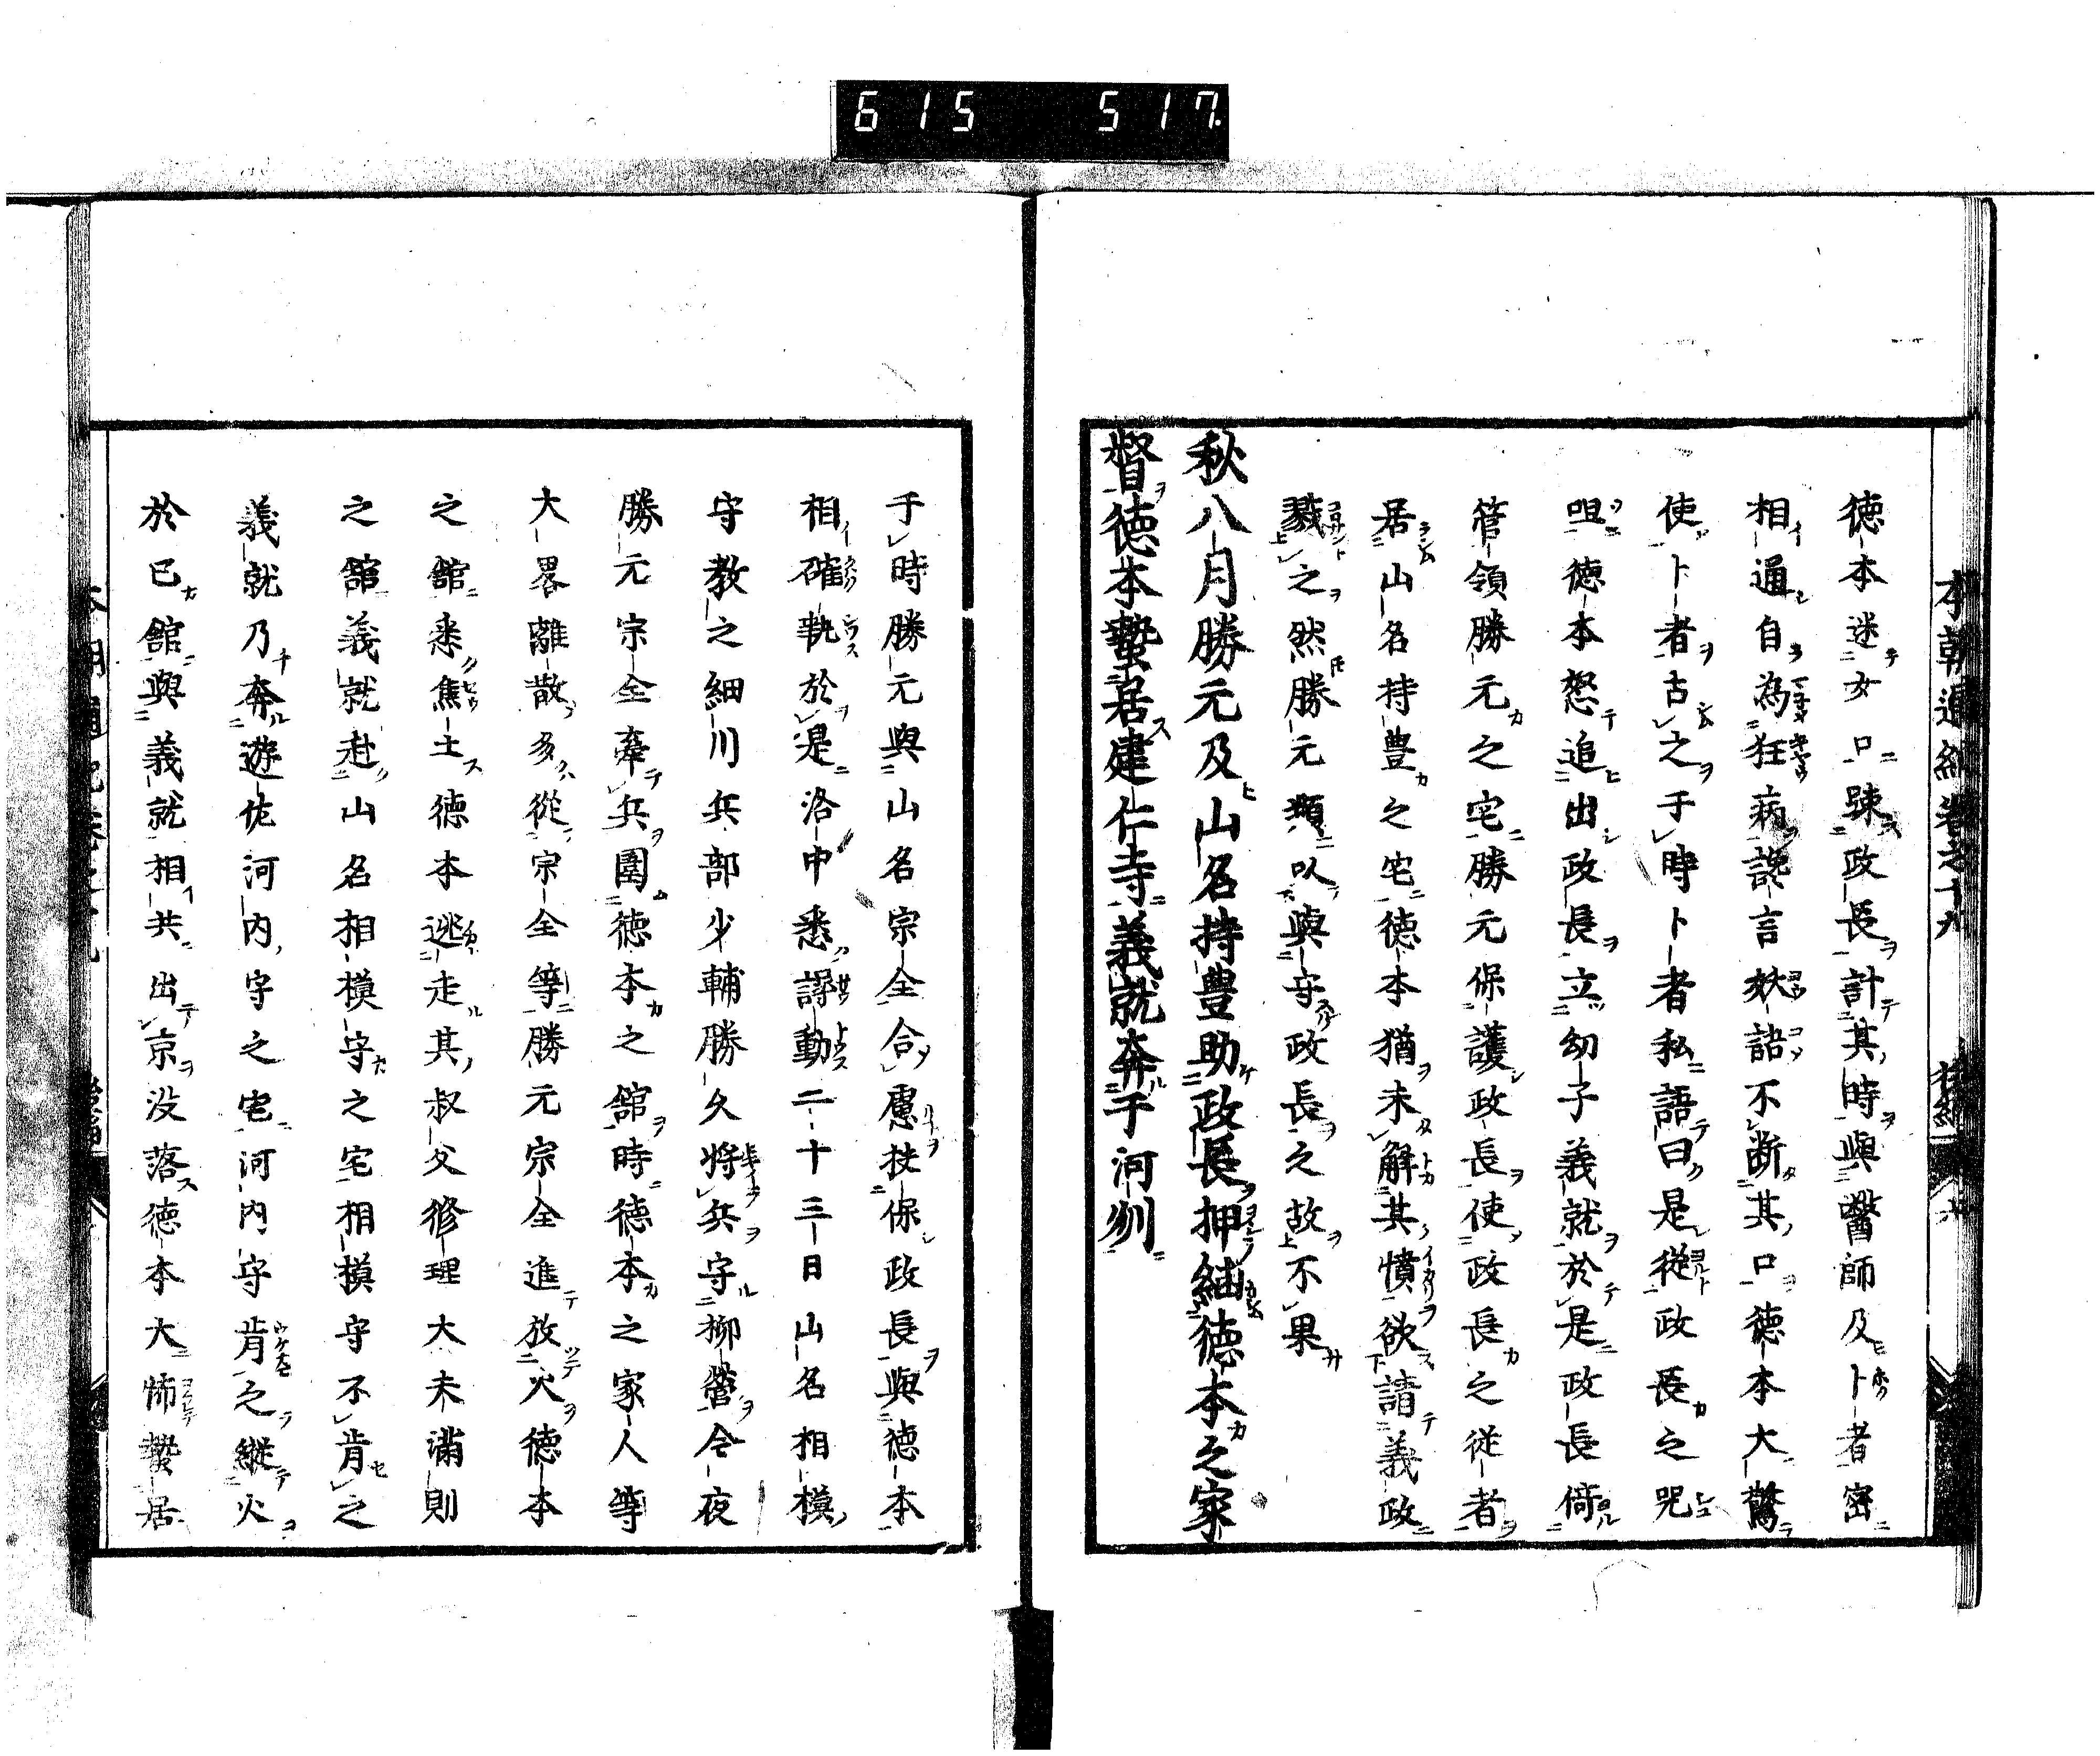 615 517
本朝通紀卷之十九
德本迷女口踈政長計其時與醫師及卜者密
相通自為狂病謡言妖語不断其口德本大驚
使卜者占之于時卜者私語曰是從政長之咒
咀德本怒追出政長立幼子義就於是政長倚
管領勝元之宅勝元保護政長使政長之從者
居山名持豊之宅德本猶未解其憤欲請義政
戮之然勝元頻以與守政長之故不果
秋八月勝元及山名持豊助政長押紬德本之家
督德本蟄居建仁寺義就奔于河刕
于時勝元與山名宗全合慮扶保政長與德本
相確執於是洛中悉譟動二十三日山名相模
守教之細川兵部少輔勝久將兵守柳營今夜
勝元宗全牽兵圍德本之舘時德本之家人等
大畧離散多從宗全等勝元宗全進放火德本
之舘悉焦土德本逃走其叔父修理大夫満則
之舘義就赴山名相模守之宅相模守不肯之
義就乃奔遊佐河内守之宅河内守肯之縱火
於已舘與義就相共出京没落德本大怖蟄居